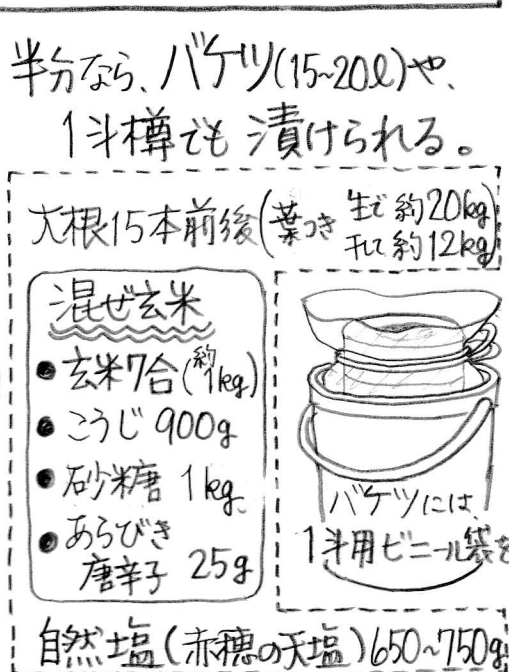 半分なら、バケツ(15~20ℓ)や、
1斗樽でも漬けられる。
大根15本前後(葉つき 生で約20kg
干して約12kg)
混ぜ玄米
●玄米7合(約1kg)
●こうじ 900g
●砂糖 1kg
●あらびき
唐辛子 25g
バケツには、
1斗用ビニール袋を
自然塩(赤穂の天塩)650~750g